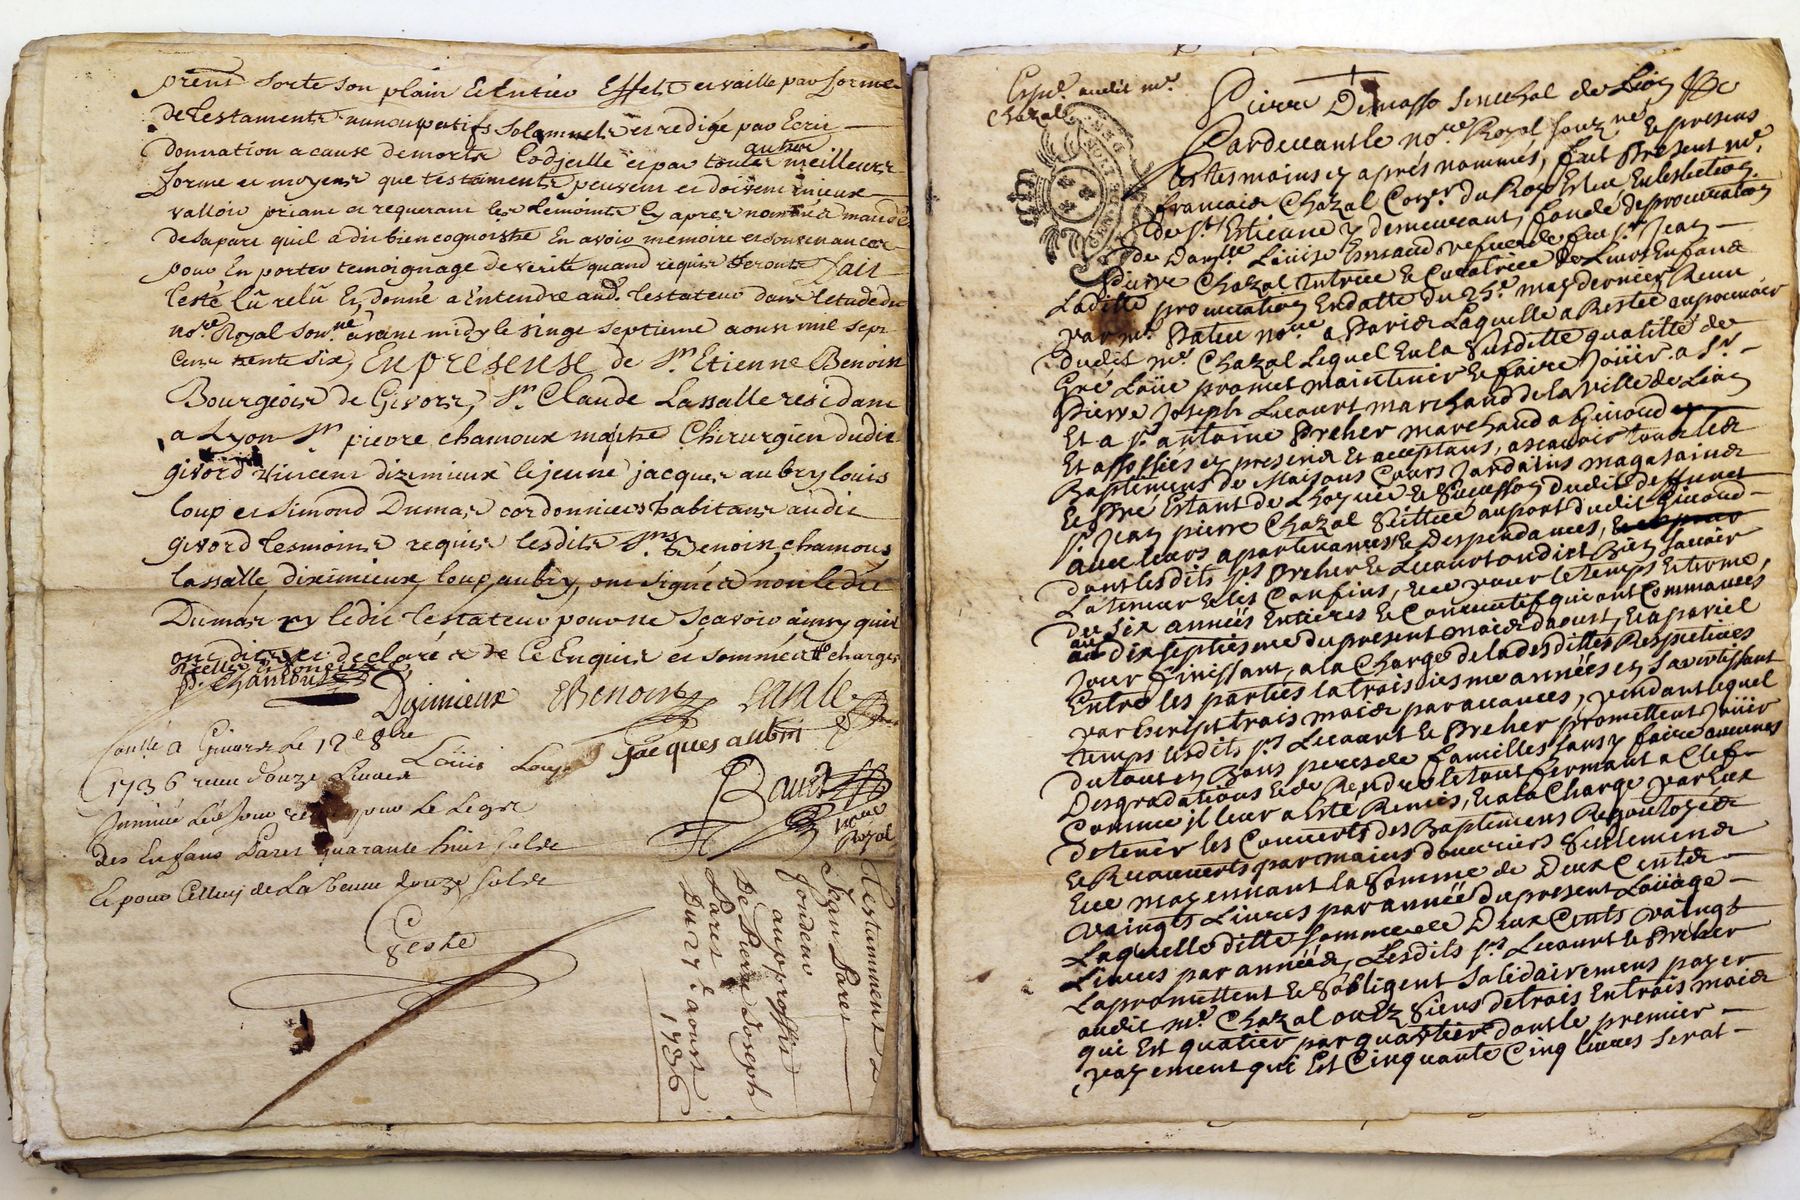 prent sorte son plain et entier Effet et vaille par forme
de testament nuncupatif solamnel et redigé par Ecrit
donnation a cause de mort Codjcille et par toutes autres meilleure
forme et moyens que testaments peuvent et doivent mieux
valloir priant et requerant les temoints Cy apres nommés mandé
de sa part quil a dit bien cognoistre En avoir memoire et souvenance
pour En porter temoignage de verité quand requis seronts fait
leste lû relû Et donné a Entendre aud. testateur dans letude du
no.re Royal sou.né avant midy le vingt septieme aoust mil sept
cent trente six, En presense de Sr. Etienne Benoin
Bourgeois de Givors, Sr. Claude Lassalle residant
a Lyon Sr. pierre chamoux maitre Chirurgien dudit
givord vincent dizimieux le jeune jacques aubry louis
loup et Simond Dumas cordonniers habitans audit
givord tesmoins requis lesdits Srs Benoin, chamous
lassalle, diximieux, loup, aubry, ont signés et non ledit
Dumas ny ledit testateur pour ne sçavoir ainsy quil
ont dit et declaré de ce Enquis et sommés charges
P. Chamoux
Dizimieux EBenoin
Louis Loup Jacques aubrit
Conllé a Givors Le 12e 8bre
1736 receu douze Livres
Des Enfans Paret quarante huit sols
Et pour Celluy de la veuve douze sols
no.re
Royal
Testamment
Jean Paret
fondeur
au proffit
De Pierre Joseph
Paret
Du 27e aoust
1736
Exp.e audit me.
Chazal
Pierre Demasso Senechal de Lion
Pardevant le no.re Royal souz.né, & presens
les tesmoins cy aprés nommés, fait Present me.
francois Chazal Con.er du Roy Eslu En lelection
de St. Estienne y demeurant, fondé de procuration
de Dam.lle Louise Enreaud vefue de feu Sr. Jean
Pierre Chazal tutrice & Curatrice de leurs Enfans
Ladite procuration En datte du 25.e may dernier Receu
par me. Patu no.re a Paris Laquelle a Restée au pouuoir
dudit me. Chazal Lequel En la Susditte qualitté de
Gré Loüe promet maintenir & faire Joüir a Sr.
Pierre Joseph Lecourt marchand de la ville de Lion
Et a Sr. antoine Breher marchand a Giuord
Et assossiés cy presens Et acceptans, a scauoir tous les
Baptimens de Maisons Cours Jardains magasains
& Pré Estant de Lhoyrie & Succession dudit deffunct
Sr. Jean pierre Chazal Scittuée au port dudit Giuord
auec leurs apartenances & Despendances,
dont lesdits Srs. Breher & Lecourt ont dit Bien sauoir
La teneur & les Confins, & ce pour le temps & terme,
de Six années Entieres & Consecutif qui ont Commancés
au dix septiesme du present mois daoust, & a pariel
Jour Finissant, a la Charge de la desdittes Respetiues
Entre les parties la troisiesme année en S'avertissant
par Escript trois mois par auances, pendant lequel
temps lesdits Srs. Lecourt & Breher promettent Joüir
du tout en Bons peres de familles sans y faire aucunes
Desgradations & de Rendre le tout fermant a Clef
Comme jl leur a Esté Remis, & a la Charge par Eux
de tenir les Couuerts des Baptimens Regouttoyés
& Recouuerts par mains douuriers Seulement
& ce moyennant la Somme de Deux Cents
vaingts Liures par année du present Loüage
Laquelle ditte Somme de Deux Cents vaingt
Liures par année, Lesdits Srs. Lecourt & Breher
La promettent & Sobligent Solidairement payer
audit me. Chazal ou Ez Siens de trois En trois mois
qui Est quatier par quartier dont le premier
payement qui Est Cinquante Cinq liures serat